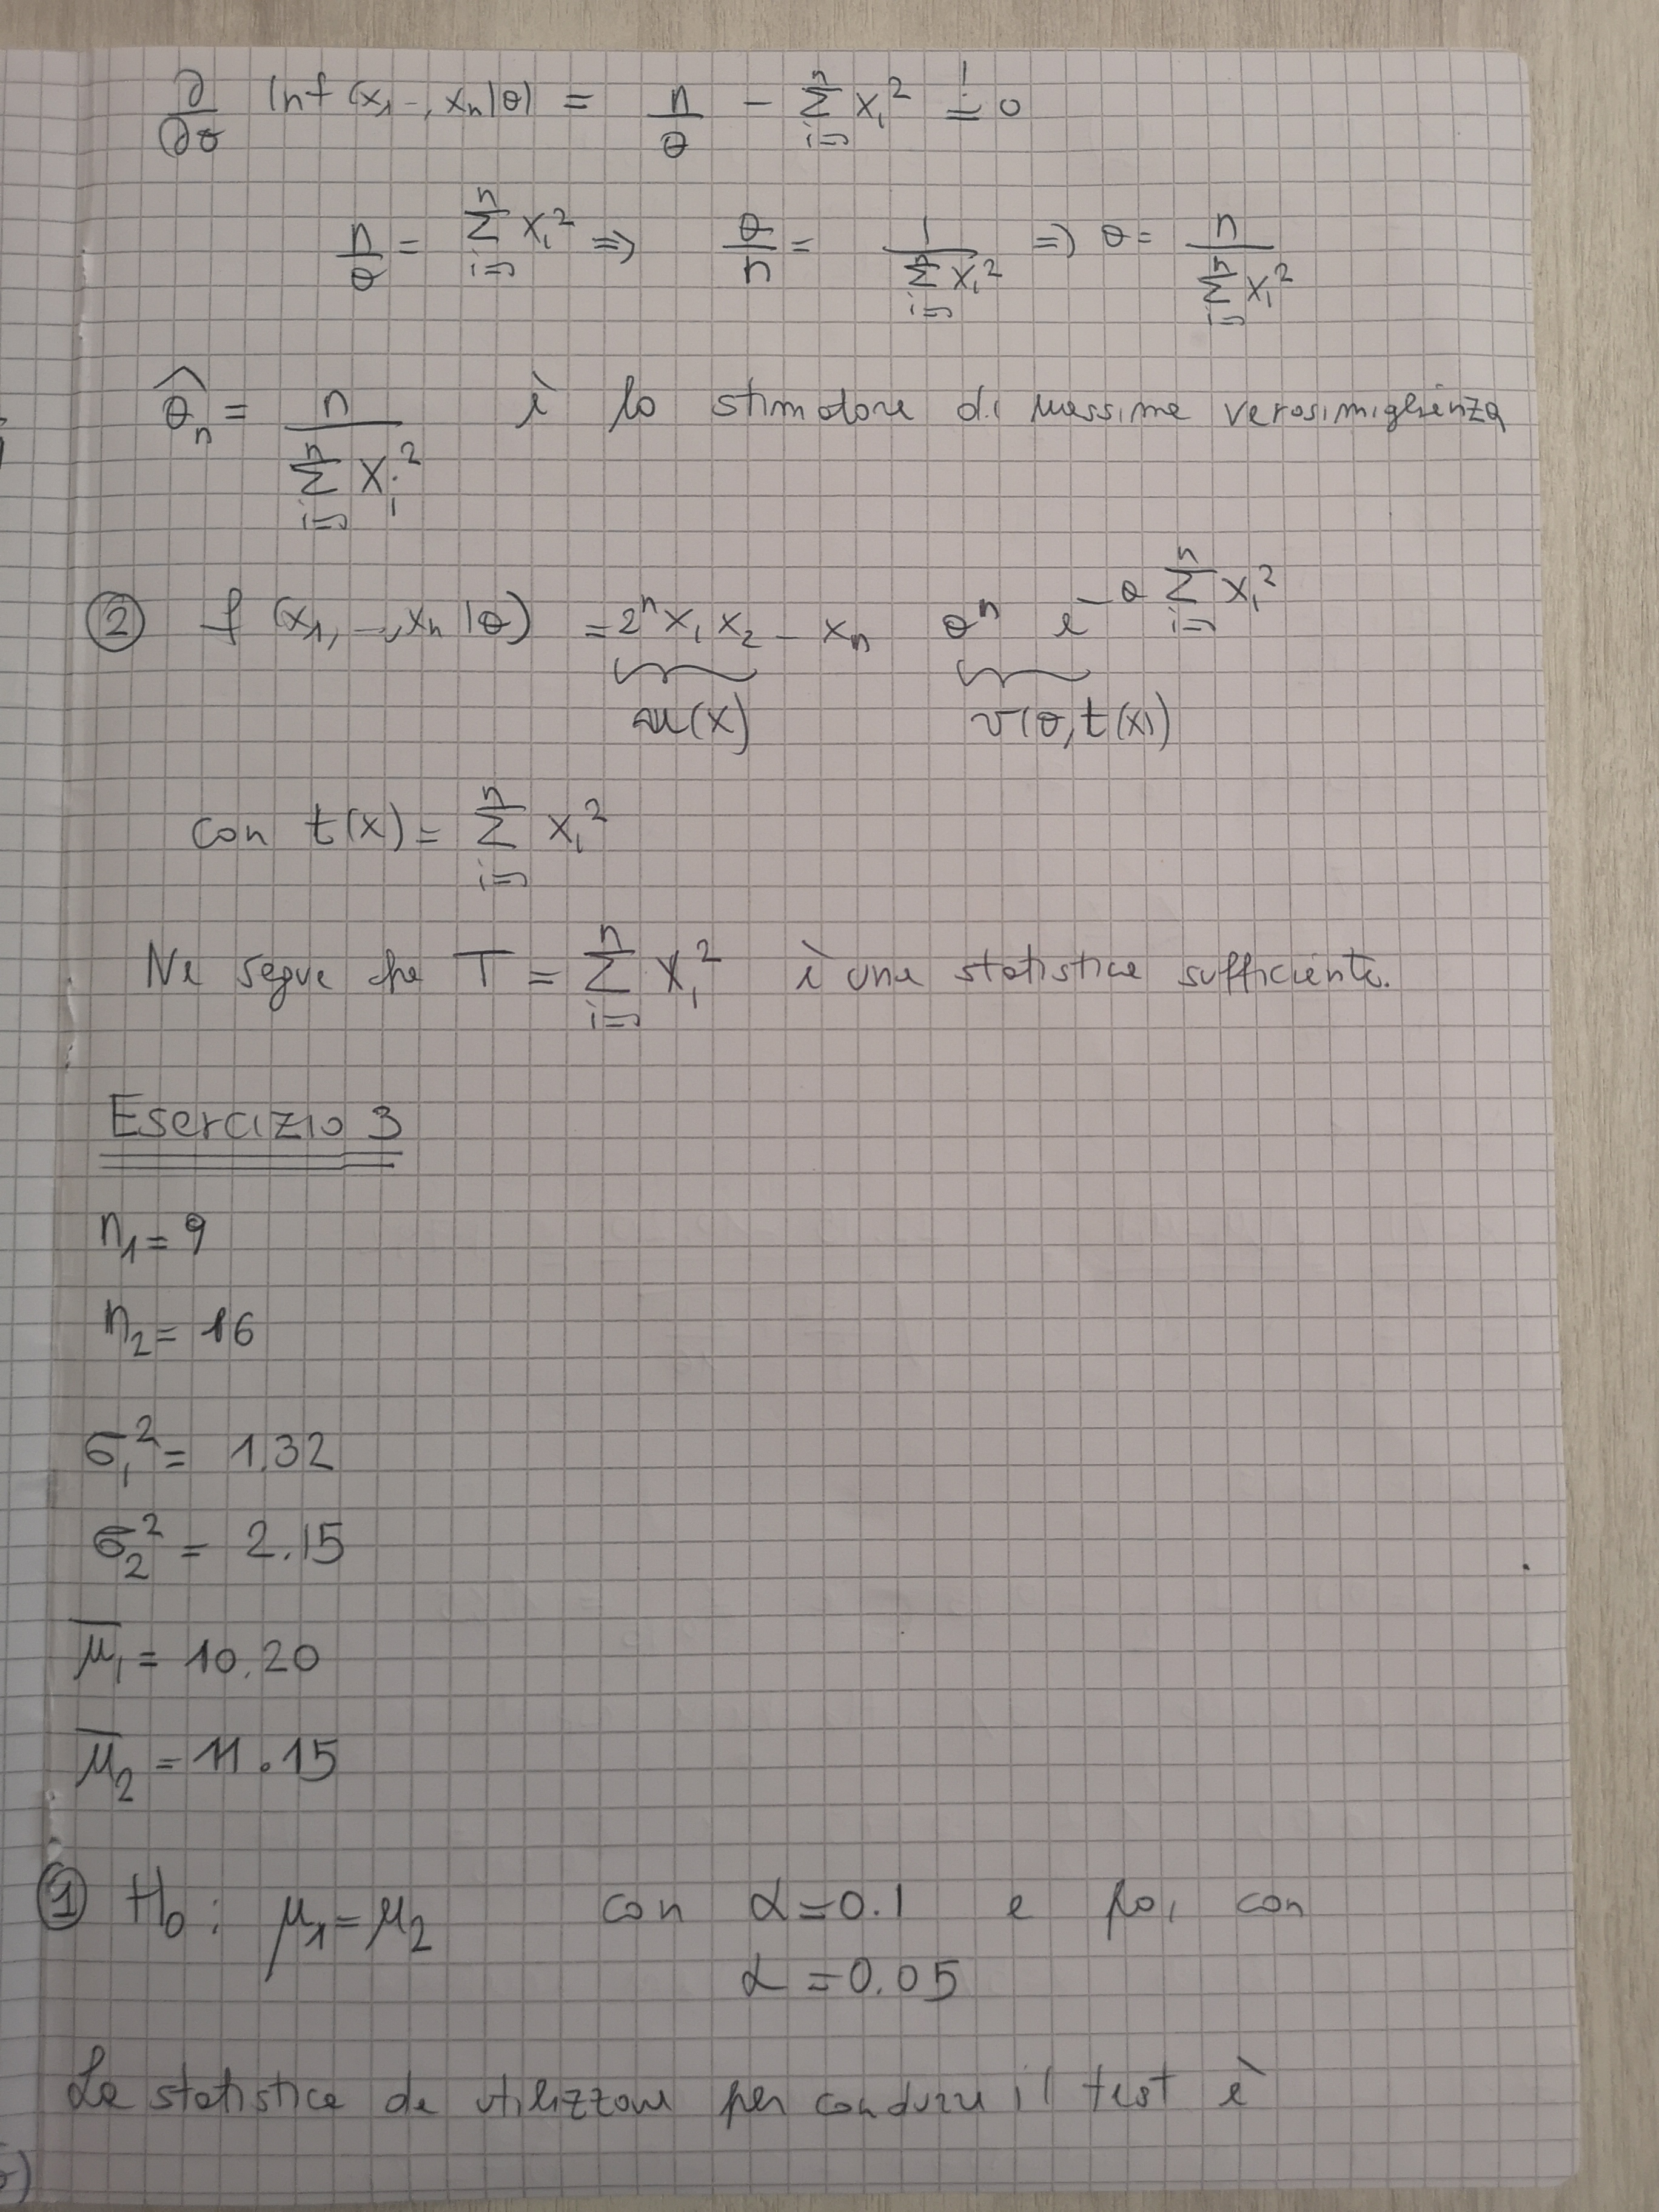 ∂/∂θ ln f (x₁ –, xₙ|θ) = n/θ – Σᵢ₌₁ⁿ xᵢ² =! 0
n/θ = Σᵢ₌₁ⁿ xᵢ² => θ/n = 1/Σᵢ₌₁ⁿ xᵢ² => θ = n/Σᵢ₌₁ⁿ xᵢ²
θ̂ₙ = n/Σᵢ₌₁ⁿ Xᵢ² è lo stimatore di massima verosimiglianza
② f (x₁, –, xₙ |θ) = 2ⁿ x₁ x₂ – xₙ θⁿ e^(–θ Σᵢ₌₁ⁿ xᵢ²)
u(x) v(θ, t(x))
con t(x) = Σᵢ₌₁ⁿ xᵢ²
Ne segue che T = Σᵢ₌₁ⁿ Xᵢ² è una statistica sufficiente.
Esercizio 3
n₁ = 9
n₂ = 16
σ₁² = 1.32
σ₂² = 2.15
μ̅₁ = 10.20
μ̅₂ = 11.15
① H₀ : μ₁ = μ₂ con α = 0.1 e poi con
α = 0.05
La statistica da utilizzare per condurre il test è